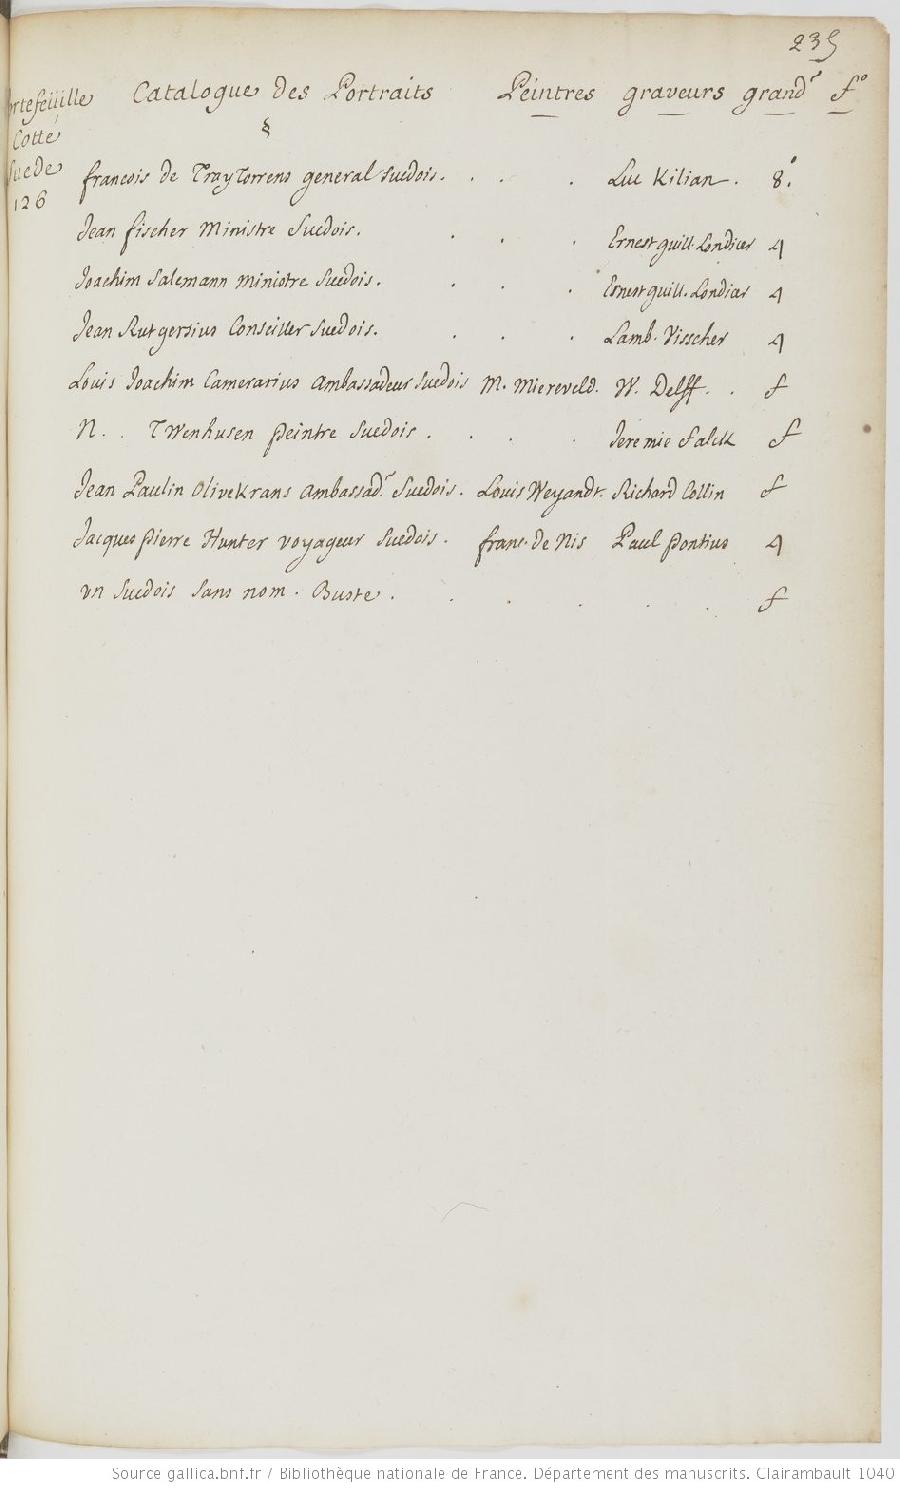 235
Portefeüille Catalogue des Portraits Peintres graveurs grandr fo
Cotté
Suede
126
françois de Traytorrens general Suedois. . . . Luc Kilian. 8o.
Jean fischer Ministre Suedois. . . . Ernest guill. Londicer 4
Joachim Salemann ministre Suedois. . . . Ernest guill. Londicer 4
Jean Rutgersius Conseiller Suedois. . . . Lamb. Visscher 4
Louis Joachim Camerarius ambassadeur Suedois M. Miereveld. W. Delff. . f
N. . Twenhusen peintre Suedois . . . . Jeremie Falck f
Jean Paulin Olivekrans ambassadr Suedois. Louis Weyandt. Richard Collin f
Jacques pierre Hunter voyageur Suedois. franc. de Nis Paul pontius 4
un Suedois Sans nom. Buste. . . . . . f
Source gallica.bnf.fr / Bibliothèque nationale de France. Département des manuscrits. Clairambault 1040